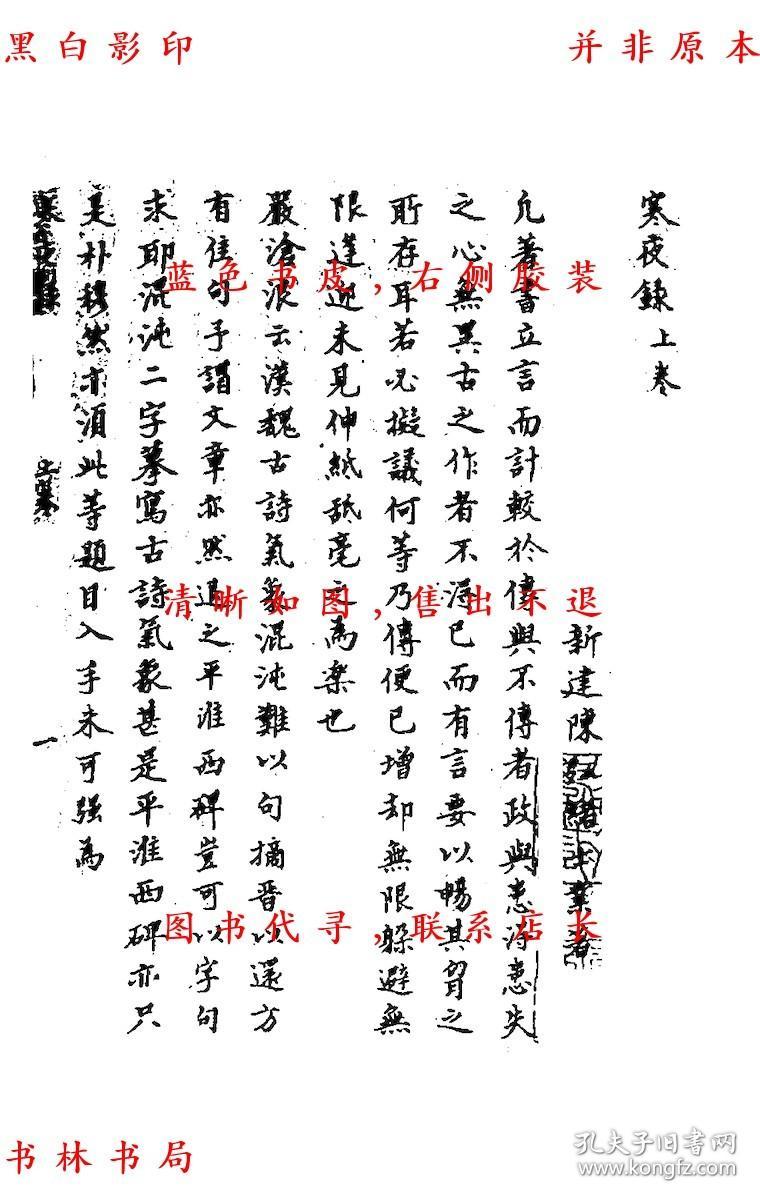 黑白影印
并非原本
寒夜録上卷
新建陳弘緒士業著
凡著書立言而計較於傳與不傳者政與患得患失
之心無異古之作者不得已而有言要以暢其胷之
所存耳若必擬議何等乃傳便已增却無限躲避無
限逢迎未見伸紙舐毫之為樂也
嚴滄浪云漢魏古詩氣象混沌難以句摘晋以還方
有佳句予謂文章亦然退之平淮西碑豈可以字句
求耶混沌二字摹寫古詩氣象甚是平淮西碑亦只
是朴穆然亦須此等題目入手未可强為
寒夜録
上卷
一
蓝色书皮,右侧胶装
清晰如图,售出不退
图书代寻,联系店长
书林书局
孔夫子旧书网
www.kongfz.com